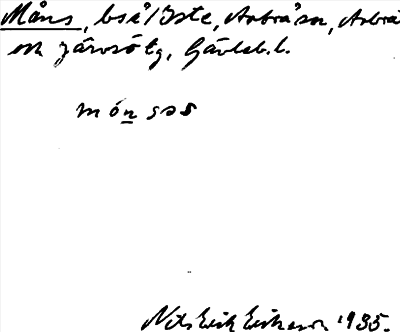 Måns, bså/Iste, Arbrå sn, Arbrå
och Järvsö tg, Gävleb. l.
món sɔs
Nils Erik Eriksson 1935.